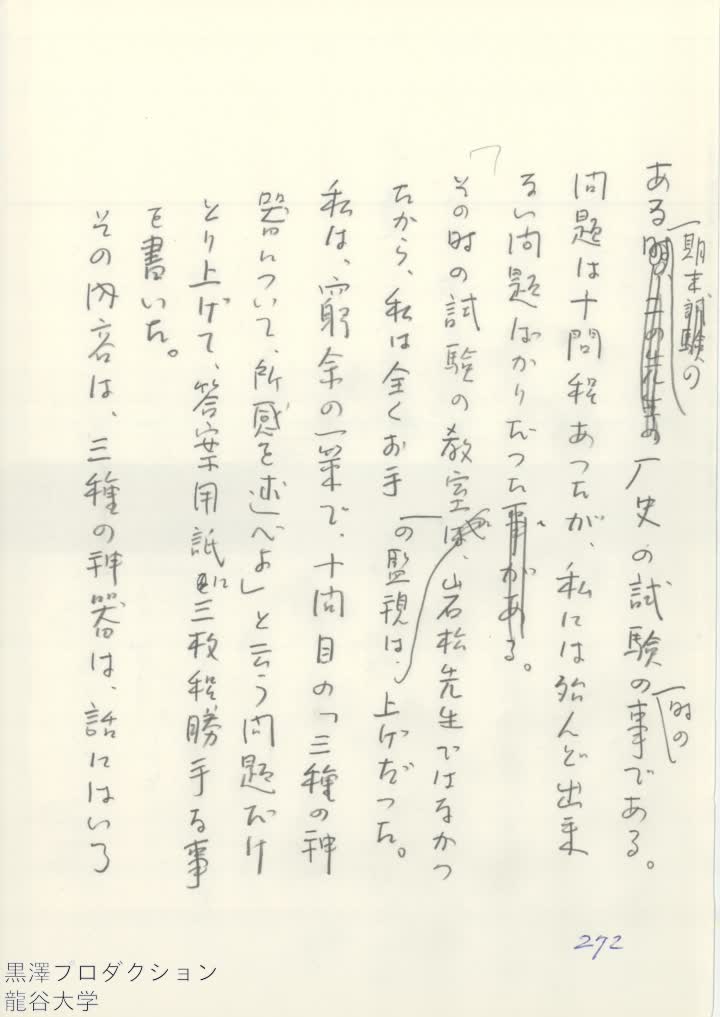 ある期末試験の厂史の試験の時の事である。
問題は十問程あつたが、私には殆んど出来
ない問題ばかりだつた。
その時の試験の教室の監視は、岩松先生ではなかつ
たから、私は全くお手上げだつた。
私は、窮余の一策で、十問目の「三種の神
器について、所感を述べよ」と云う問題だけ
とり上げて、答案用紙に三枚程勝手な事
を書いた。
その内容は、三種の神器は、話にはいろ
272
黒澤プロダクション
龍谷大学